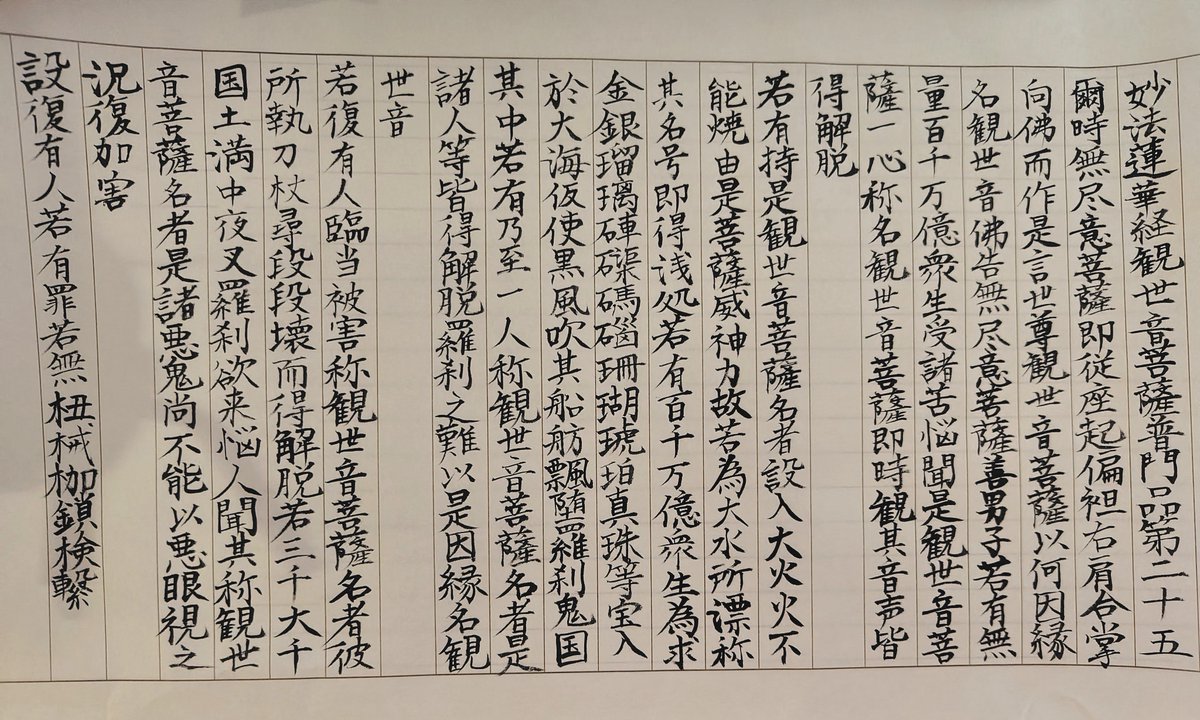 妙法蓮華経観世音菩薩普門品第二十五
爾時無尽意菩薩即従座起偏袒右肩合掌
向佛而作是言世尊観世音菩薩以何因縁
名観世音佛告無尽意菩薩善男子若有無
量百千万億衆生受諸苦悩聞是観世音菩
薩一心称名観世音菩薩即時観其音声皆
得解脱
若有持是観世音菩薩名者設入大火火不
能焼由是菩薩威神力故若為大水所漂称
其名号即得浅処若有百千万億衆生為求
金銀瑠璃硨磲碼碯珊瑚琥珀真珠等宝入
於大海仮使黒風吹其船舫飄堕羅刹鬼国
其中若有乃至一人称観世音菩薩名者是
諸人等皆得解脱羅刹之難以是因縁名観
世音
若復有人臨当被害称観世音菩薩名者彼
所執刀杖尋段段壊而得解脱若三千大千
国土満中夜叉羅刹欲来悩人聞其称観世
音菩薩名者是諸悪鬼尚不能以悪眼視之
況復加害
設復有人若有罪若無杻械枷鎖検繋